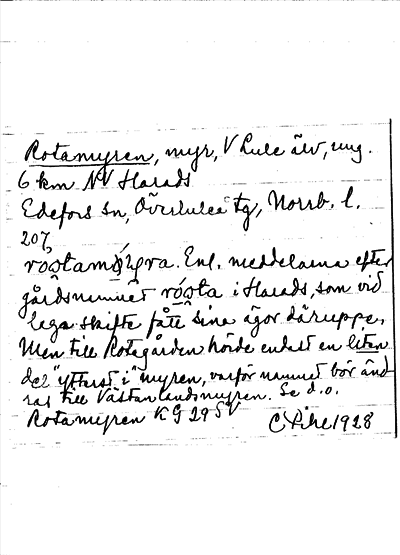 Rotamyren, myr, V Lule älv, ung.
6 km NV Harads
Edefors sn, Överluleå tg, Norrb. l.
207,
Enl. meddelarna efter
gårdsnamnet i Harads, som vid
laga skifte fått sina ägor däruppe.
Men till Rotegården hörde endast en liten
del "ytterst i" myren, varför namnet bör änd-
ras till Västanlandsmyren. Se d.o.
Rotamyren KG 29 SV
C Pihl 1928